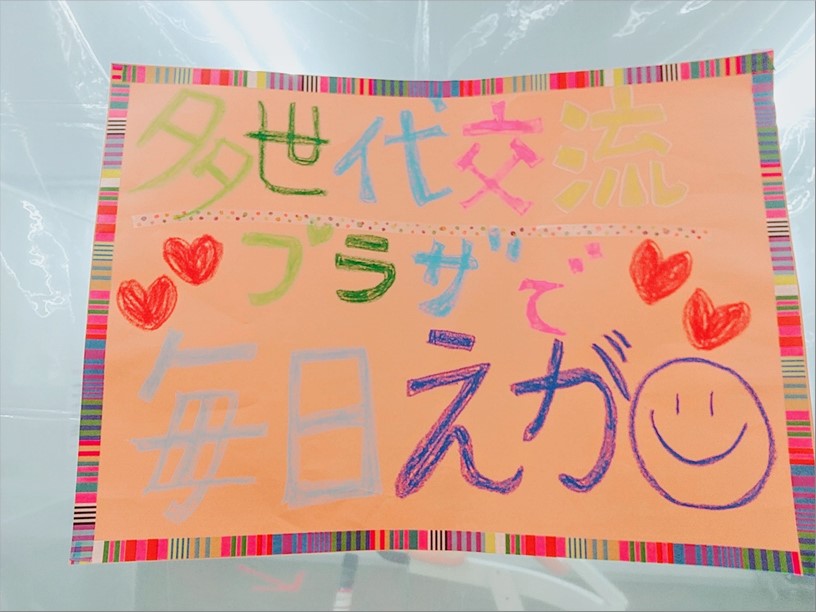 多世代交流
プラザで
毎日えがお